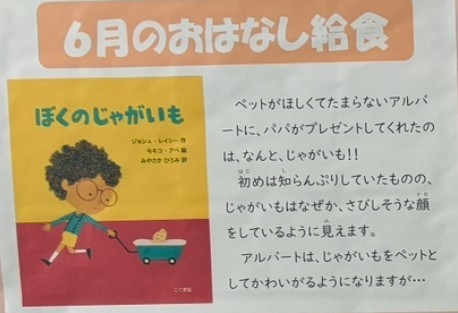 6月のおはなし給食
ぼくのじゃがいも
ジョシュ・レイシー 作
モモコ・アベ 絵
みやさか ひろみ 訳
こぐま社
ペットがほしくてたまらないアルバ
ートに、パパがプレゼントしてくれたの
は、なんと、じゃがいも!!
初めは知らんぷりしていたものの、
じゃがいもはなぜか、さびしそうな顔
をしているように見えます。
アルバートは、じゃがいもをペットと
してかわいがるようになりますが…